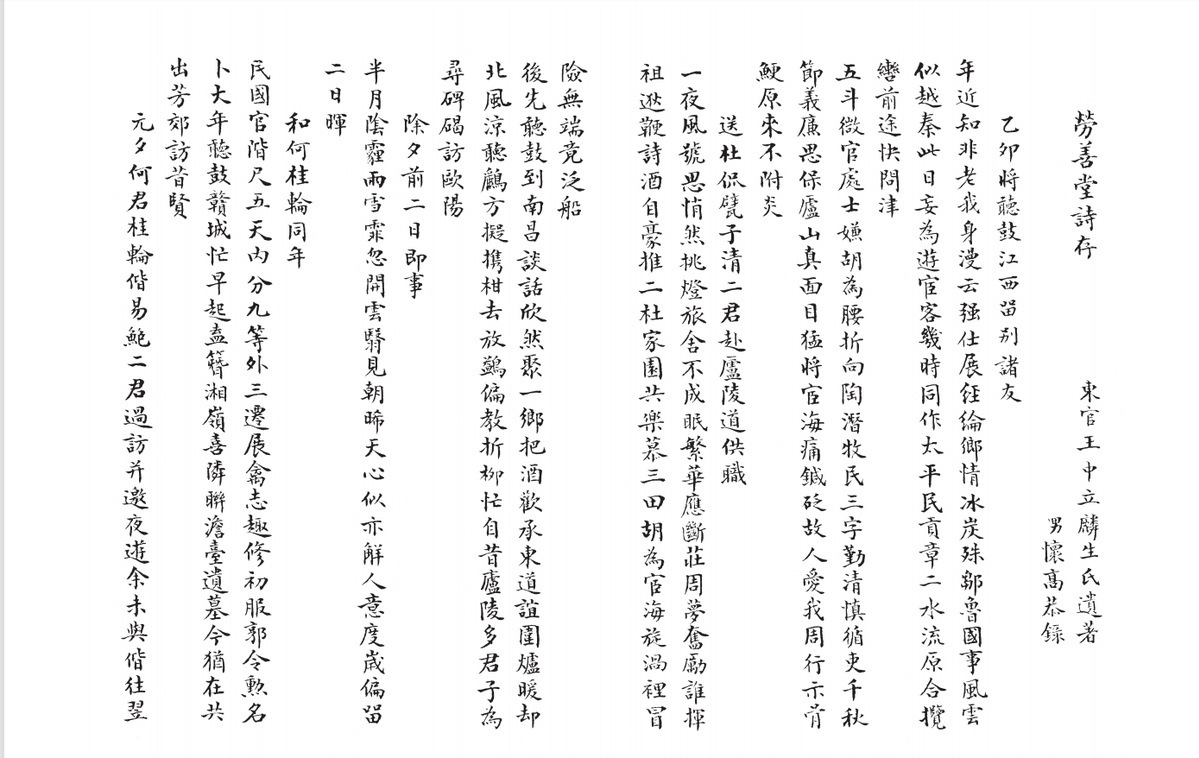 勞善堂詩存
東官王中立麟生氏遺著
男懷高恭錄
乙卯將聽鼓江西畱别諸友
年近知非老我身漫云强仕展經綸鄉情冰炭殊鄒魯國事風雲
似越秦此日妄為遊官客幾時同作太平民貢章二水流原合攬
轡前途快問津
五斗微官處士嫌胡為腰折向陶潛牧民三字勤清慎循吏千秋
節義廉思保廬山真面目猛將宦海痛鍼砭故人愛我周行示骨
鯁原来不附炎
送杜侃甓子清二君赴廬陵道供職
一夜風號思悄然挑燈旅舍不成眠繁華應斷莊周夢奮勵誰揮
祖逖鞭詩酒自豪推二杜家園共樂慕三田胡為宦海旋渦裡冒
險無端竟泛船
後先聽鼓到南昌談話欣然聚一鄉把酒歡承東道誼圍爐暖却
北風涼聽鸝方擬携柑去放鷁偏教折柳忙自昔廬陵多君子為
尋碑碣訪歐陽
除夕前二日即事
半月陰霾雨雪霏忽開雲翳見朝晞天心似亦解人意度歲偏畱
二日暉
和何桂輪同年
民國官階尺五天内分九等外三遷展禽志趣修初服郭令勲名
卜大年聽鼓贛城忙早起盍簪湘嶺喜隣聯澹臺遺墓今猶在共
出芳郊訪昔賢
元夕何君桂輪偕易鮑二君過訪并邀夜遊余未與偕往翌